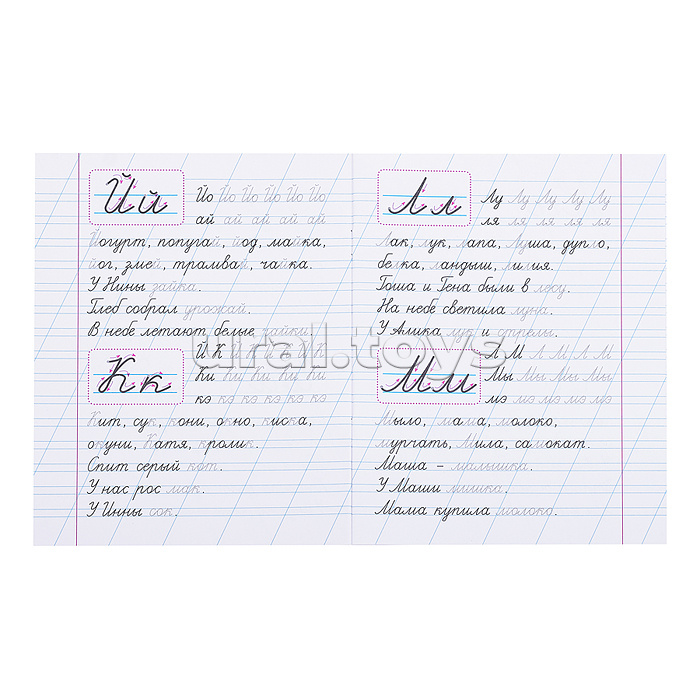 Й й
Йо Йо Йо Йо Йо Йо
ай ай ай ай ай
Йогурт, попугай, йод, майка,
йог, змей, трамвай, чайка.
У Нины зайка.
Глеб собрал урожай.
В небе летают белые чайки.
К к
Й К Й К Й К Й К
Ки Ки Ки Ки Ки
кэ кэ кэ кэ кэ кэ
Кит, сук, кони, окно, киска,
окуни, Катя, кролик.
Спит серый кот.
У нас рос мак.
У Инны сок.
Л л
Лу Лу Лу Лу Лу
ля ля ля ля ля
Лак, лук, лапа, Луша, дупло,
белка, ландыш, лилия.
Гоша и Гена были в лесу.
На небе светила луна.
У Алика лук и стрелы.
М м
Л М Л М Л М
Мы Мы Мы Мы
мэ мэ мэ мэ мэ
Мыло, мама, молоко,
моргать, Мила, самокат.
Маша – малышка.
У Маши мишка.
Мама купила молоко.
ural.toys